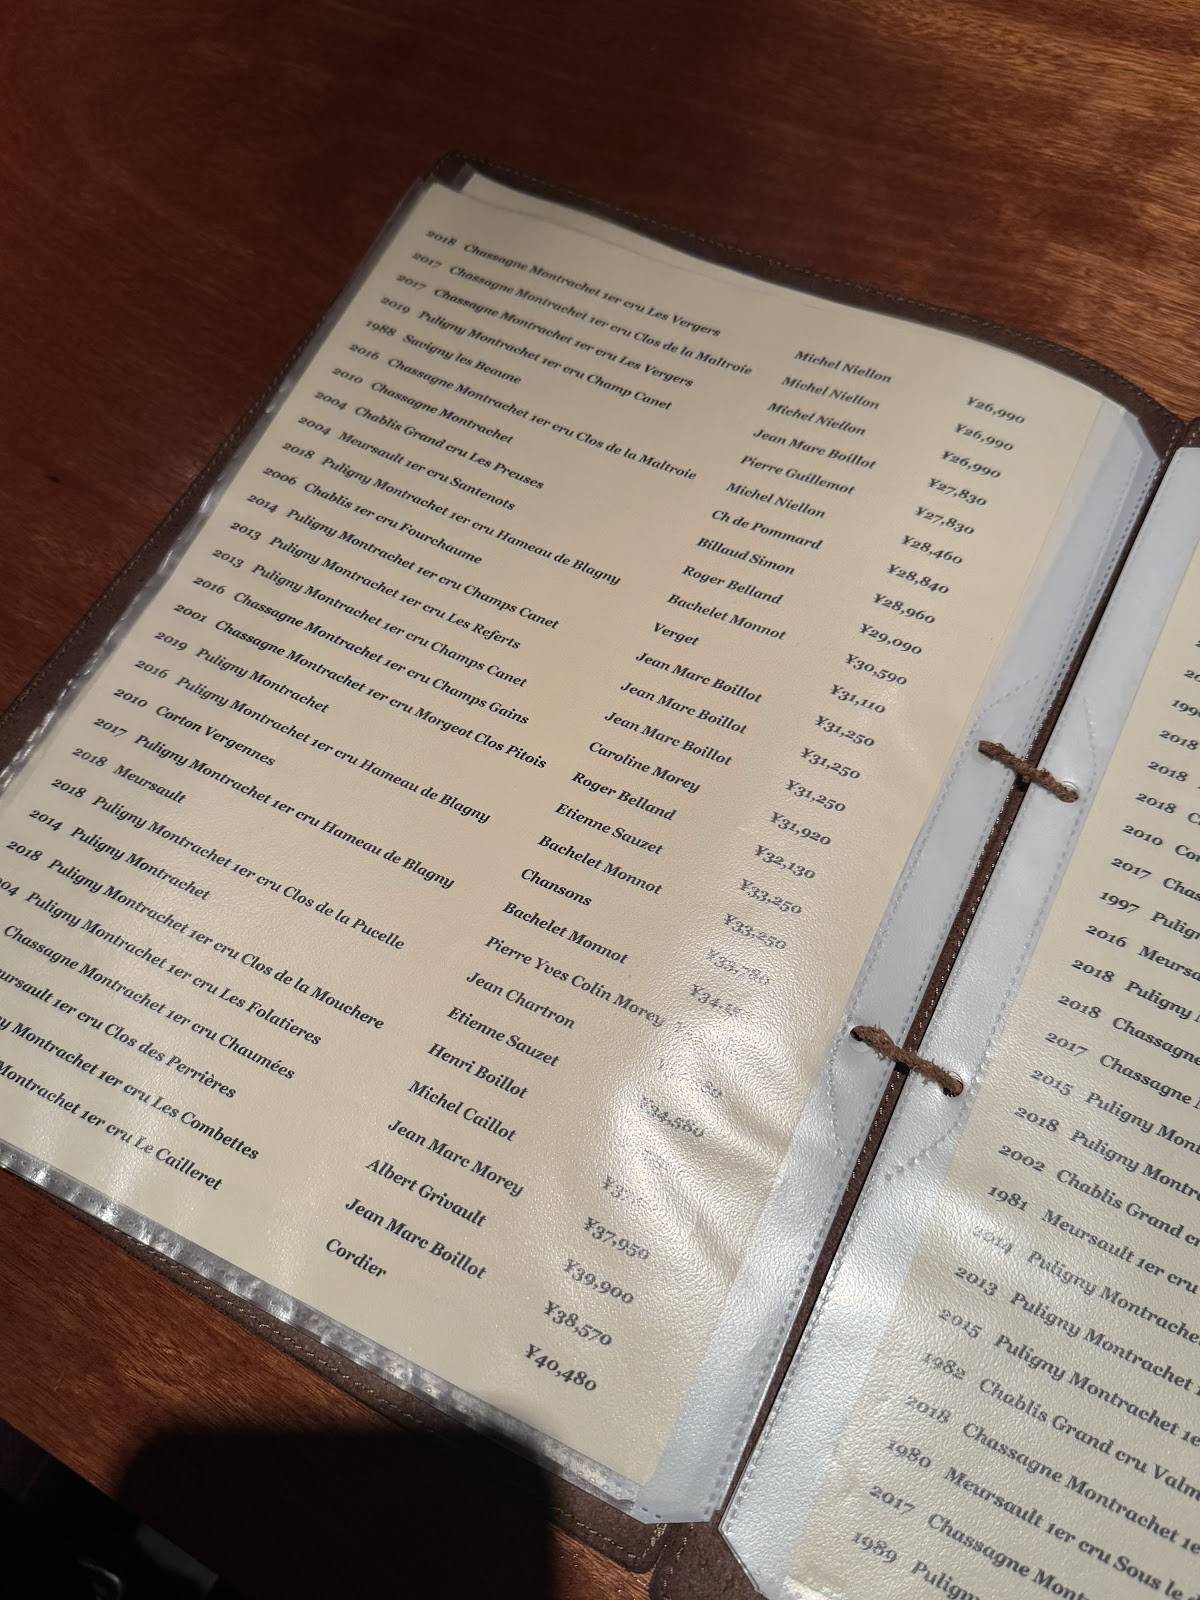 2018 Chassagne Montrachet 1er cru Les Vergers Michel Niellon ¥26,990
2017 Chassagne Montrachet 1er cru Clos de la Maltroie Michel Niellon ¥26,990
2017 Chassagne Montrachet 1er cru Les Vergers Michel Niellon ¥26,990
2019 Puligny Montrachet 1er cru Champ Canet Jean Marc Boillot ¥27,830
1988 Savigny les Beaune Pierre Guillemot ¥27,830
2016 Chassagne Montrachet 1er cru Clos de la Maltroie Michel Niellon ¥28,460
2010 Chassagne Montrachet Ch de Pommard ¥28,840
2004 Chablis Grand cru Les Preuses Billaud Simon ¥28,960
2004 Meursault 1er cru Santenots Roger Belland ¥29,090
2018 Puligny Montrachet 1er cru Hameau de Blagny Bachelet Monnot ¥30,590
2006 Chablis 1er cru Fourchaume Verget ¥31,110
2014 Puligny Montrachet 1er cru Champs Canet Jean Marc Boillot ¥31,250
2013 Puligny Montrachet 1er cru Les Referts Jean Marc Boillot ¥31,250
2013 Puligny Montrachet 1er cru Champs Canet Jean Marc Boillot ¥31,250
2016 Chassagne Montrachet 1er cru Champs Gains Caroline Morey ¥31,920
2001 Chassagne Montrachet 1er cru Morgeot Clos Pitois Roger Belland ¥32,130
2019 Puligny Montrachet Etienne Sauzet ¥33,250
2016 Puligny Montrachet 1er cru Hameau de Blagny Bachelet Monnot ¥33,250
2010 Corton Vergennes Chansons ¥33,780
2017 Puligny Montrachet 1er cru Hameau de Blagny Bachelet Monnot
2018 Meursault Pierre Yves Colin Morey
2018 Puligny Montrachet 1er cru Clos de la Pucelle Jean Chartron
2014 Puligny Montrachet Etienne Sauzet ¥34,580
2018 Puligny Montrachet 1er cru Clos de la Mouchere Henri Boillot
04 Puligny Montrachet 1er cru Les Folatieres Michel Caillot
Chassagne Montrachet 1er cru Chaumées Jean Marc Morey ¥37,950
ursault 1er cru Clos des Perrières Albert Grivault ¥39,900
y Montrachet 1er cru Les Combettes Jean Marc Boillot ¥38,570
Montrachet 1er cru Le Cailleret Cordier ¥40,480
2
20
199
2018
2018
2018 C
2010 Co
2017 Chas
1997 Pulig
2016 Meursa
2018 Puligny
2018 Chassagne
2017 Chassagne
2015 Puligny Mont
2018 Puligny Montr
2002 Chablis Grand c
1981 Meursault 1er cru
2014 Puligny Montrache
2013 Puligny Montrachet
2015 Puligny Montrachet 1e
1982 Chablis Grand cru Valm
2018 Chassagne Montrachet 1e
1980 Meursault 1er cru Sous le
2017 Chassagne Mont
1989 Puligny